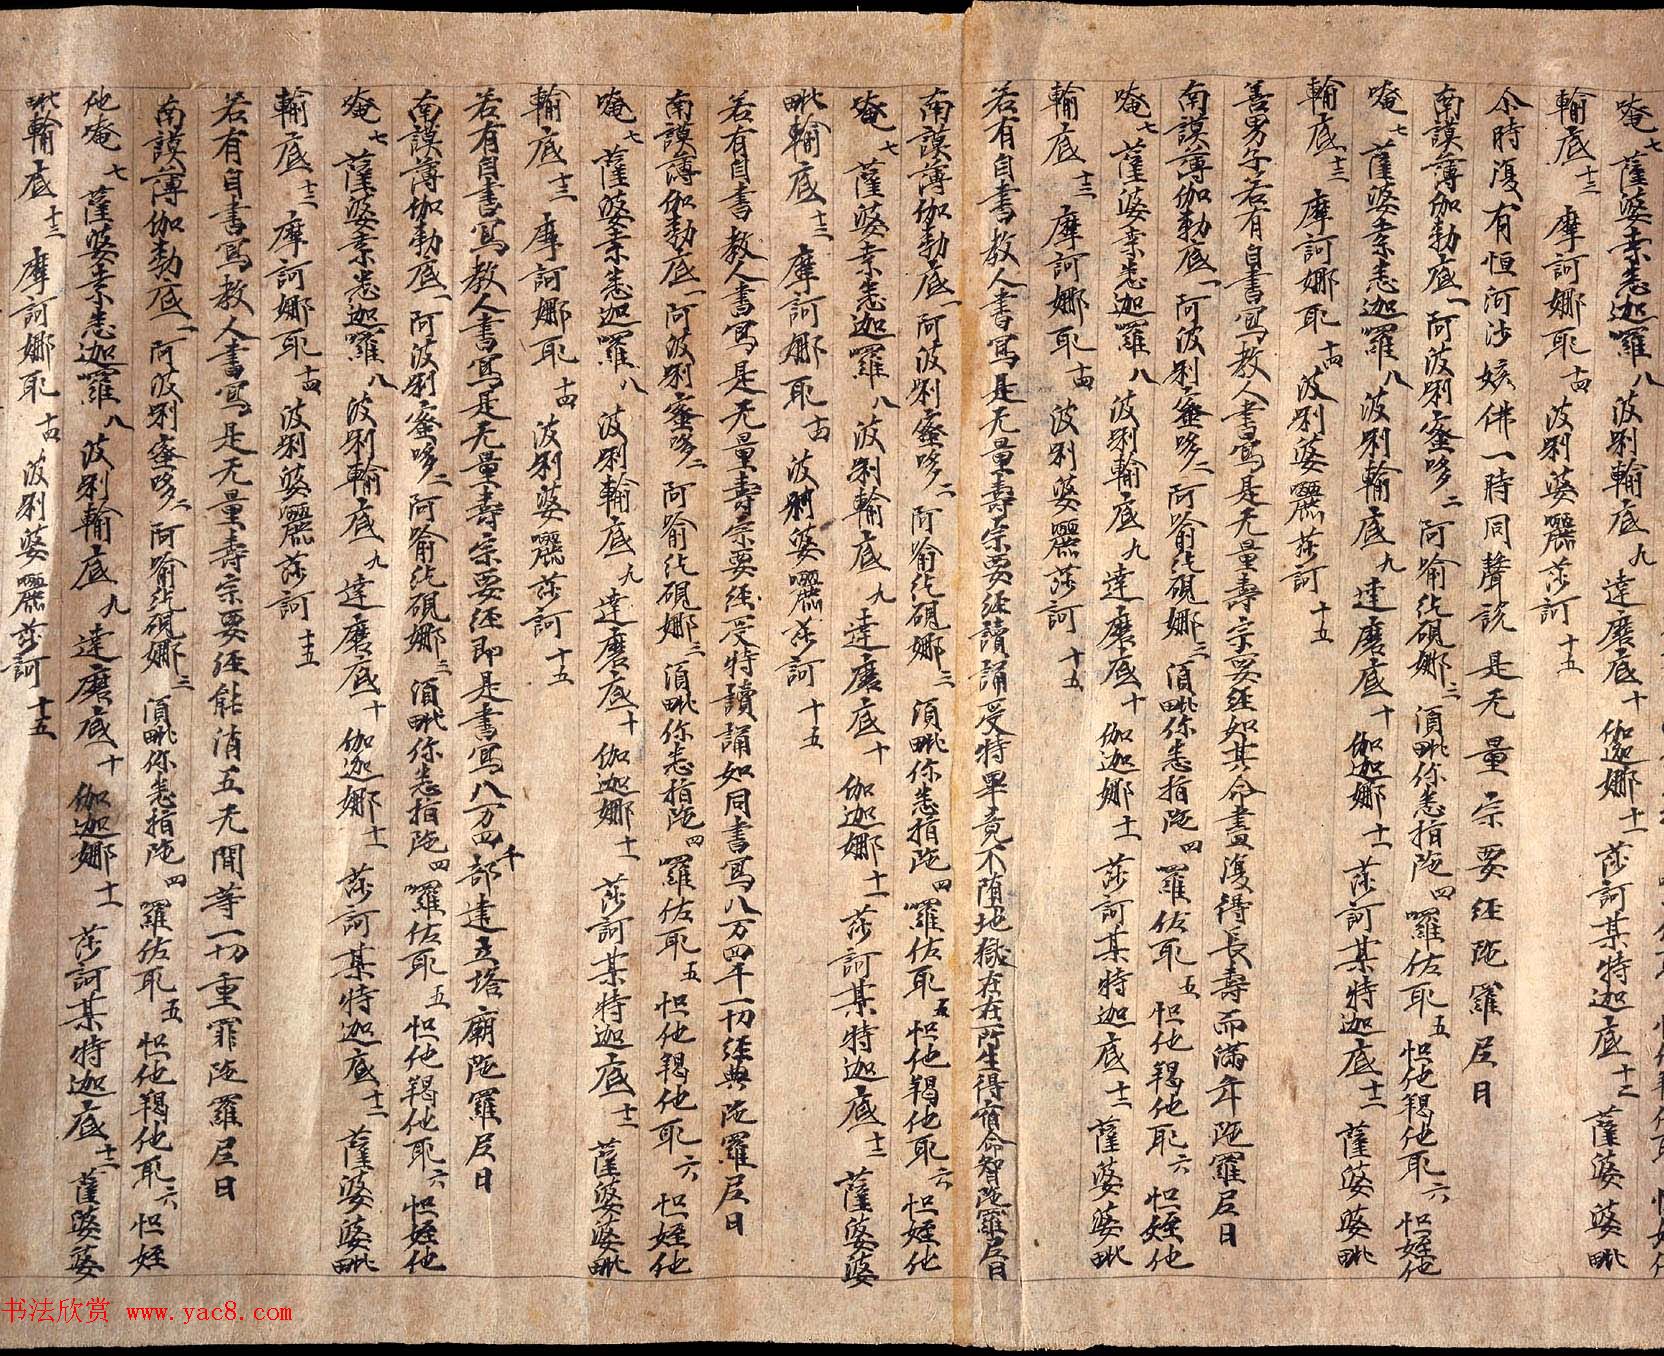 唵七 薩婆桒悉迦羅八 波唎輸底九 達磨底十 伽迦娜十一 莎訶某特迦底十二 薩婆婆毗
輸底十三 摩訶娜耶十四 波唎婆囉莎訶十五
尒時復有恒河沙姟佛一時同聲說是无量宗要経陁羅尼曰
南謨薄伽勃底一 阿波唎蜜哆二 阿喻紇硯娜三 湏毗你悉指陁四 羅佐耶五 怛他羯他耶六 怛姪他
唵七 薩婆桒悉迦羅八 波唎輸底九 達磨底十 伽迦娜十一 莎訶某特迦底十二 薩婆婆毗
輸底十三 摩訶娜耶十四 波唎婆囉莎訶十五
善男子若有自書寫教人書寫是无量壽宗要経如其命盡復得長壽而滿年陁羅尼曰
南謨薄伽勃底一 阿波唎蜜哆二 阿喻紇硯娜三 湏毗你悉指陁四 羅佐耶五 怛他羯他耶六 怛姪他
唵七 薩婆桒悉迦羅八 波唎輸底九 達磨底十 伽迦娜十一 莎訶某特迦底十二 薩婆婆毗
輸底十三 摩訶娜耶十四 波唎婆囉莎訶十五
若有自書教人書寫是无量壽宗要経讀誦受持畢竟不墮地獄在在所生得宿命智陁羅尼曰
南謨薄伽勃底一 阿波唎蜜哆二 阿喻紇硯娜三 湏毗你悉指陁四 羅佐耶五 怛他羯他耶六 怛姪他
唵七 薩婆桒悉迦羅八 波唎輸底九 達磨底十 伽迦娜十一 莎訶某特迦底十二 薩婆婆
毗輸底十三 摩訶娜耶十四 波唎婆囉莎訶十五
若有自書教人書寫是无量壽宗要経受持讀誦如同書寫八万四千一切経典陁羅尼曰
南謨薄伽勃底一 阿波唎蜜哆二 阿喻紇硯娜三 湏毗你悉指陁四 羅佐耶五 怛他羯他耶六 怛姪他
唵七 薩婆桒悉迦羅八 波唎輸底九 達磨底十 伽迦娜十一 莎訶某特迦底十二 薩婆婆毗
輸底十三 摩訶娜耶十四 波唎婆囉莎訶十五
若有自書寫教人書寫是无量壽宗要経即是書寫八万四千部建立塔廟陁羅尼曰
南謨薄伽勃底一 阿波唎蜜哆二 阿喻紇硯娜三 湏毗你悉指陁四 羅佐耶五 怛他羯他耶六 怛姪他
唵七 薩婆桒悉迦羅八 波唎輸底九 達磨底十 伽迦娜十一 莎訶某特迦底十二 薩婆婆毗
輸底十三 摩訶娜耶十四 波唎婆囉莎訶十五
若有自書寫教人書寫是无量壽宗要経能消五无間等一切重罪陁羅尼曰
南謨薄伽勃底一 阿波唎蜜哆二 阿喻紇硯娜三 湏毗你悉指陁四 羅佐耶五 怛他羯他耶六 怛姪
他唵七 薩婆桒悉迦羅八 波唎輸底九 達磨底十 伽迦娜十一 莎訶某特迦底十二 薩婆婆
毗輸底十三 摩訶娜耶十四 波唎婆囉莎訶十五
书法欣赏 www.yac8.com